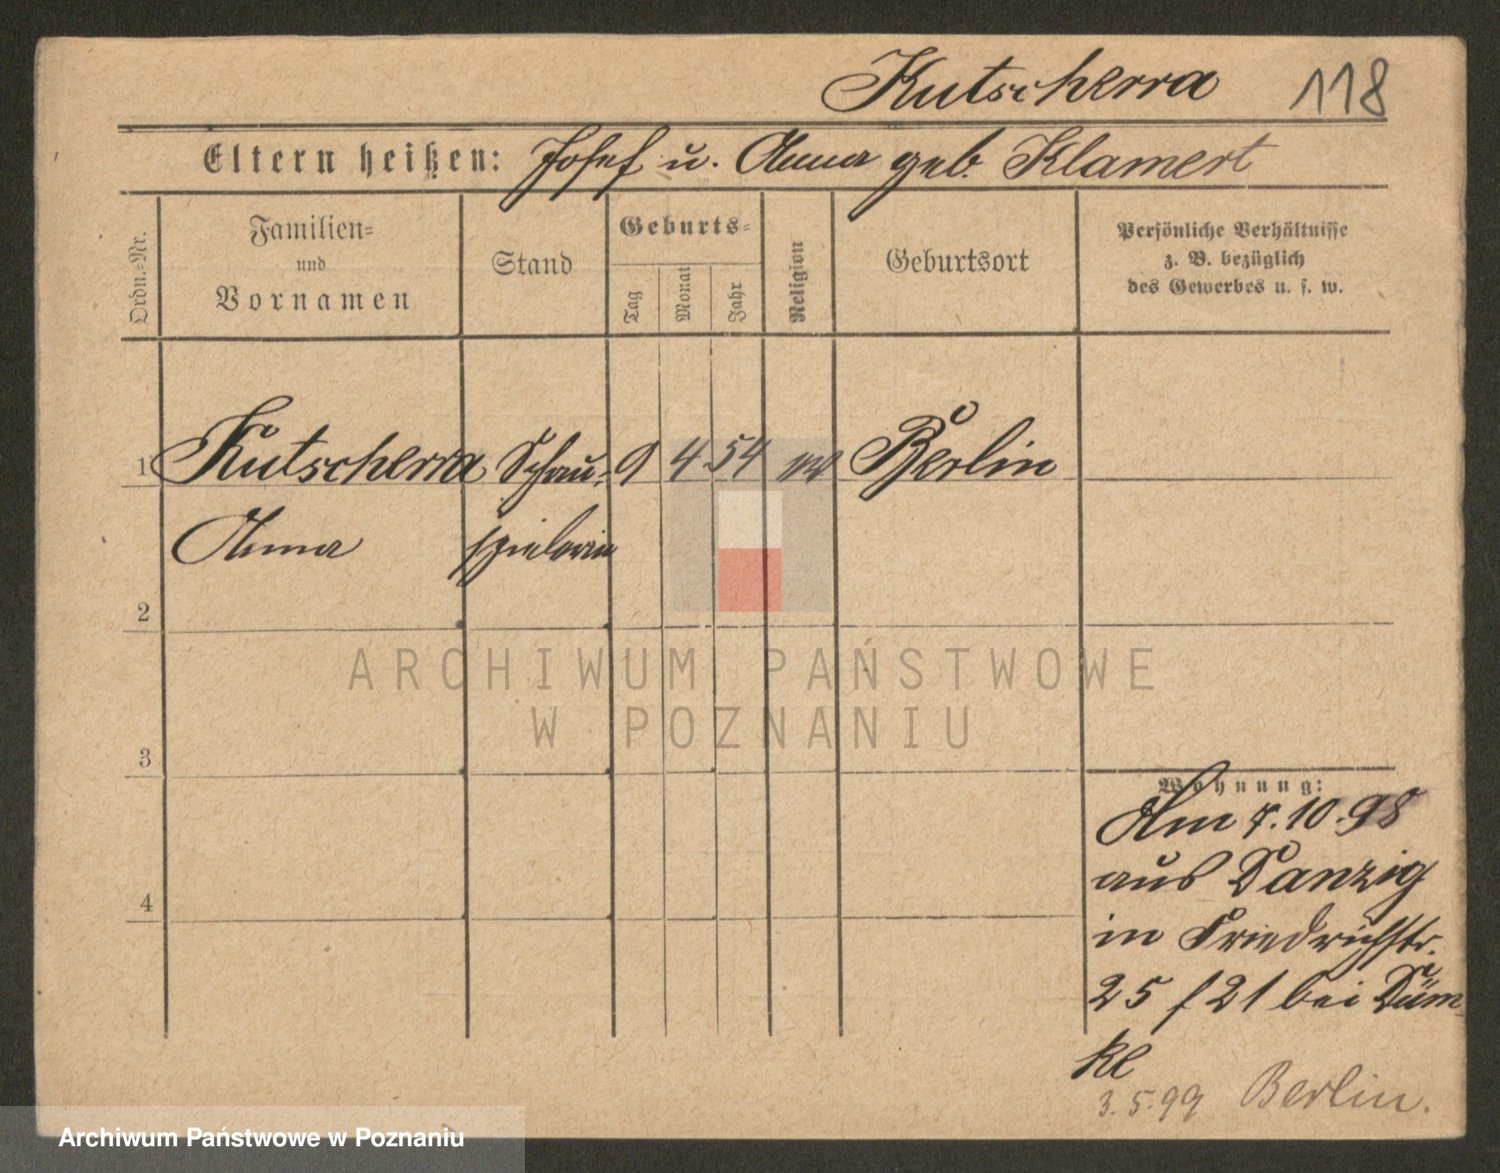 Kutscherra 118
Eltern heißen: Josef u. Anna geb. Klamert
Ordn.=Nr.
Familien=
und
Vornamen
Stand
Geburts=
Tag
Monat
Jahr
Religion
Geburtsort
Persönliche Verhältnisse
z. B. bezüglich
des Gewerbes u. s. w.
1 Kutscherra Schau- 9 4 54 Berlin
Anna spielerin
2
ARCHIWUM PAŃSTWOWE
W POZNANIU
3
Wohnung:
Am 7.10.98
aus Danzig
4
in Friedrichstr.
25 f 21 bei Düm-
ke
3.5.99 Berlin.
Archiwum Państwowe w Poznaniu